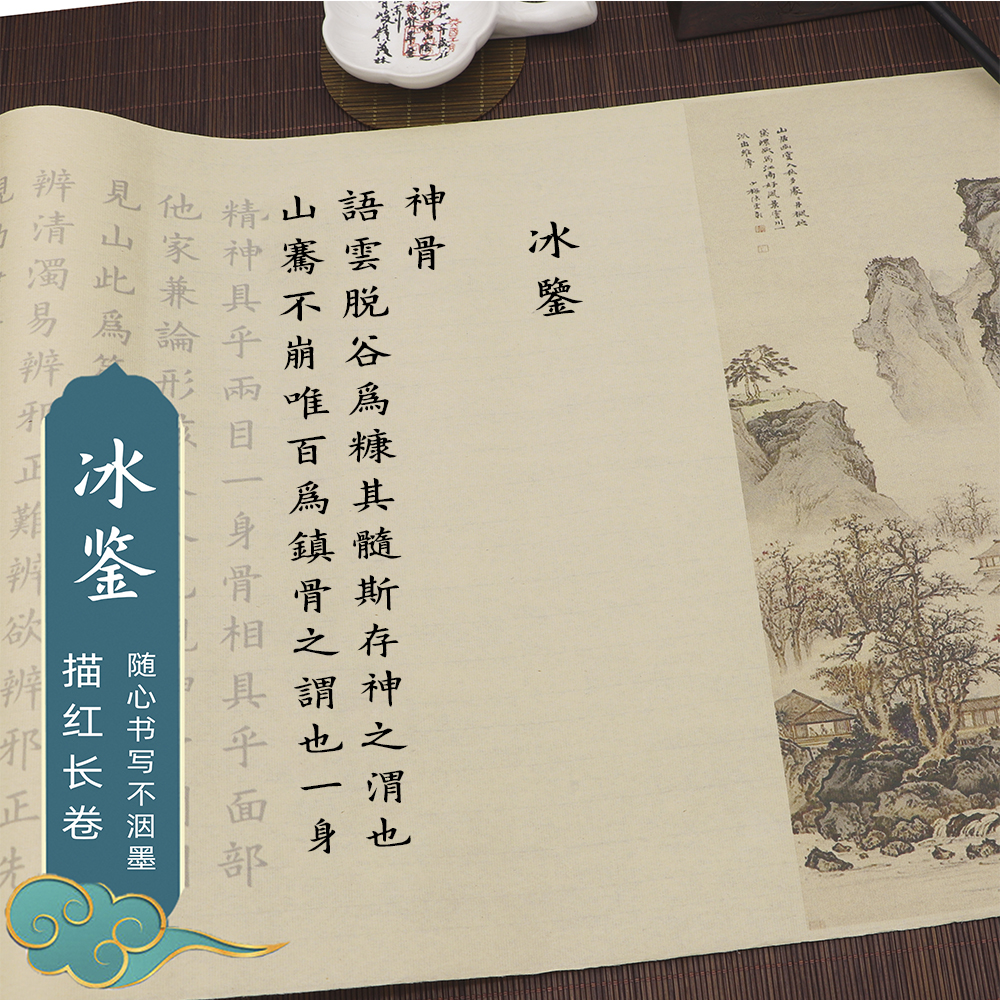 冰鑒
神骨
語雲脱谷爲糠其髓斯存神之渭也
山騫不崩唯百爲鎮骨之謂也一身
精神具乎兩目一身骨相具乎面部
他家兼論形
見山此爲
辨清濁易辨邪正難辨欲辨邪正先
冰鉴
随心书写不洇墨
描红长卷